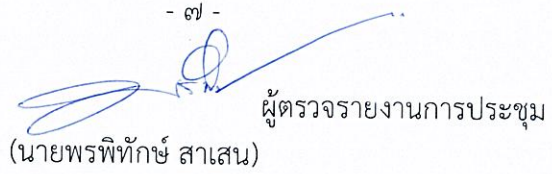 - ๗ -
ผู้ตรวจรายงานการประชุม
(นายพรพิทักษ์ สาเสน)